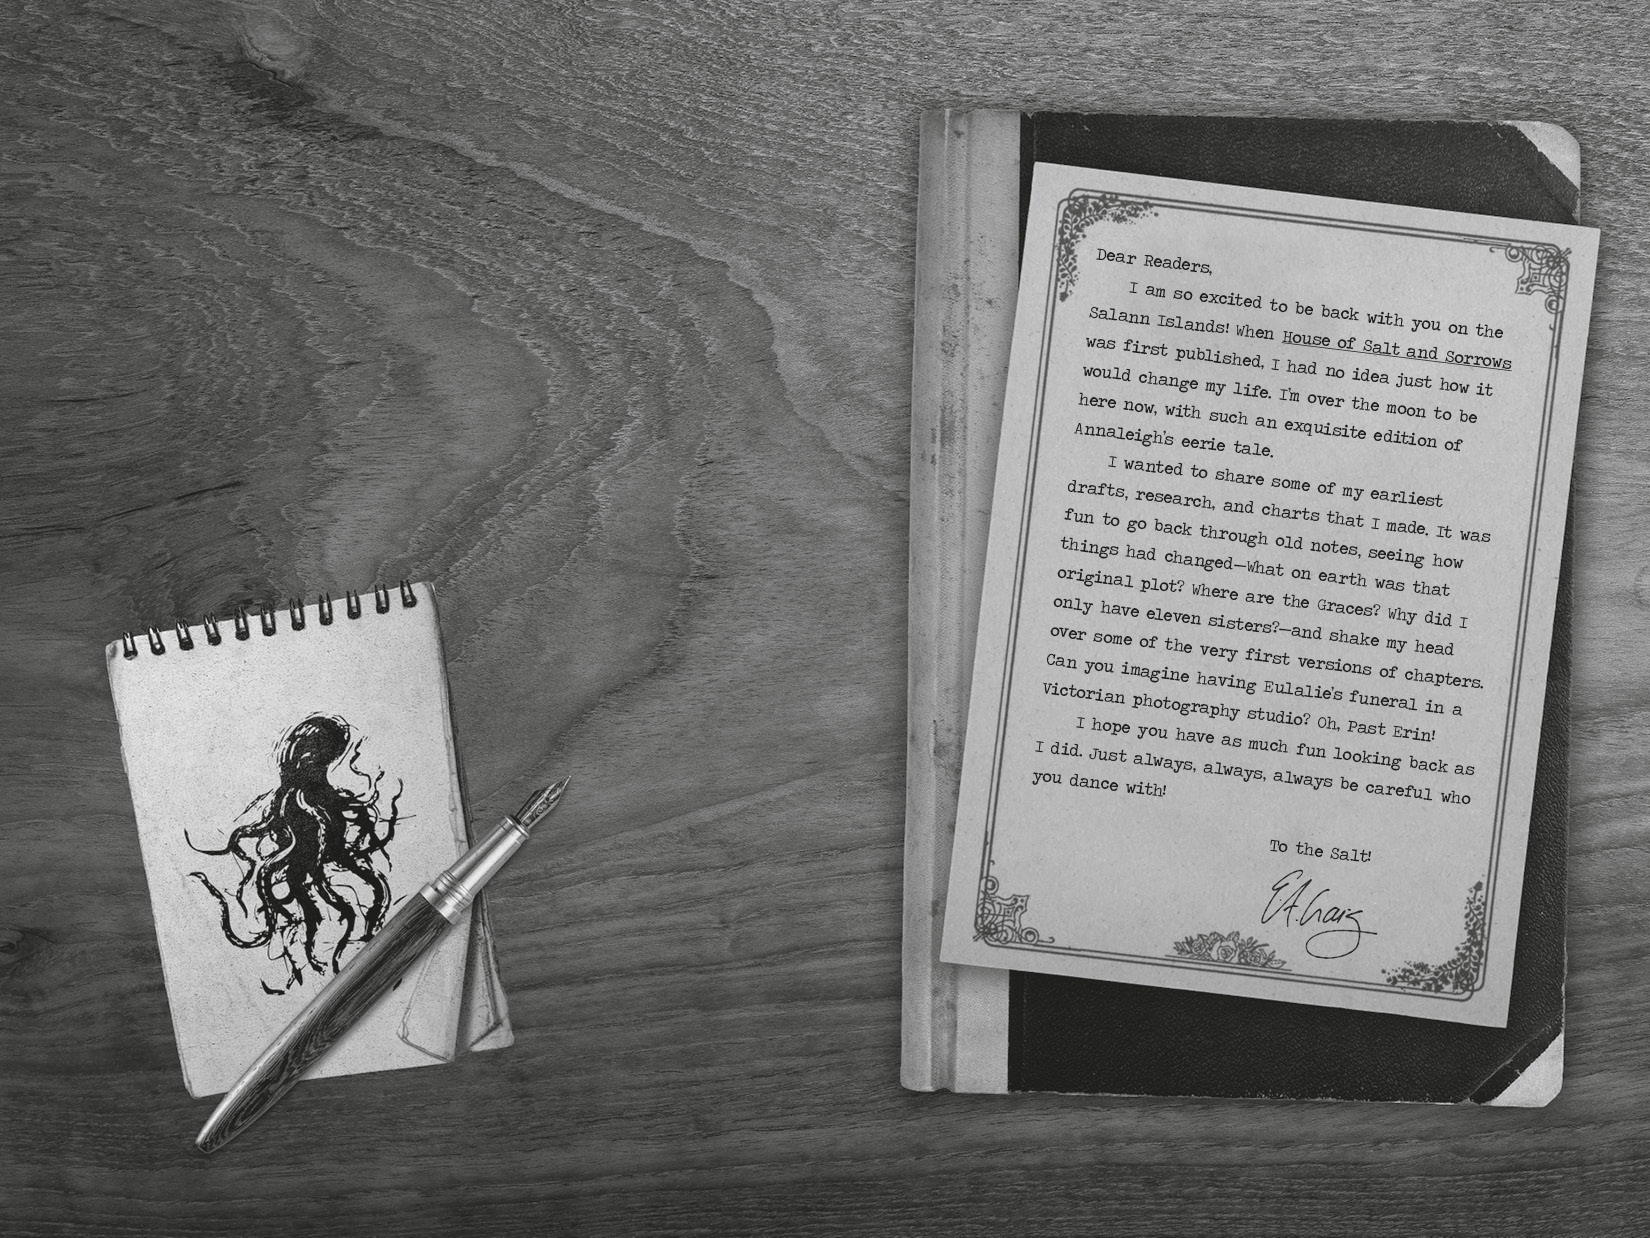 Dear Readers,
I am so excited to be back with you on the
Salann Islands! When House of Salt and Sorrows
was first published, I had no idea just how it
would change my life. I'm over the moon to be
here now, with such an exquisite edition of
Annaleigh's eerie tale.
I wanted to share some of my earliest
drafts, research, and charts that I made. It was
fun to go back through old notes, seeing how
things had changed—What on earth was that
original plot? Where are the Graces? Why did I
only have eleven sisters?—and shake my head
over some of the very first versions of chapters.
Can you imagine having Eulalie's funeral in a
Victorian photography studio? Oh, Past Erin!
I hope you have as much fun looking back as
I did. Just always, always, always be careful who
you dance with!
To the Salt!
E.A. Craig